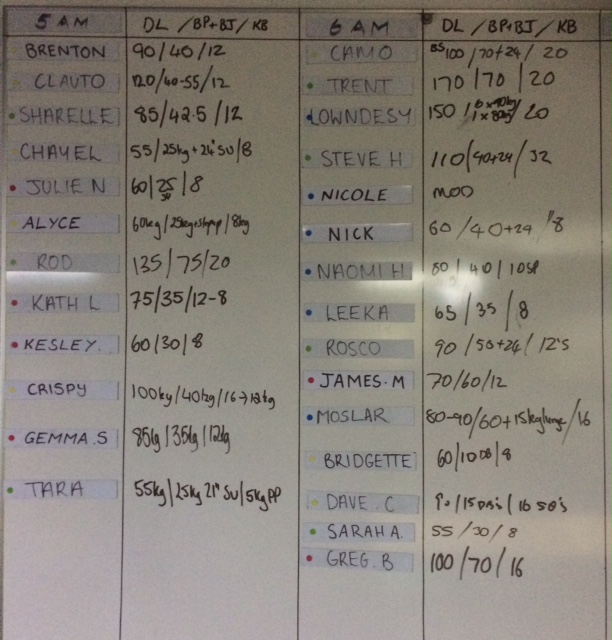 5 AM DL / BP+BJ / KB
BRENTON 90/40/12
CLAUTO 120/40-55/12
SHARELLE 85/42.5/12
CHAYEL 55/25kg + 21" SU/8
JULIE N 60/25/8
ALYCE 60kg/25kg+stepup/8kg
ROD 135/75/20
KATH L 75/35/12-8
KESLEY. 60/30/8
CRISPY 100kg/40kg/16→12kg
GEMMA.S 85kg/35kg/12kg
TARA 55kg/25kg 21" SU/5kg PP
6 AM DL / BP+BJ / KB
CAMO BS100/70+24/20
TRENT 170/70/20
LOWNDESY 150/ /20
STEVE H 110/90+24/32
NICOLE MOD
NICK 60/40+24/8
NAOMI H 80/40/10
LEEKA 65/35/8
ROSCO 90/50+24/12's
JAMES.M 70/60/12
MOSLAR 80-90/60+15kg lunge/16
BRIDGETTE 60/10DB/8
DAVE.C 90/15 DB's/16
SARAH A. 55/30/8
GREG.B 100/70/16